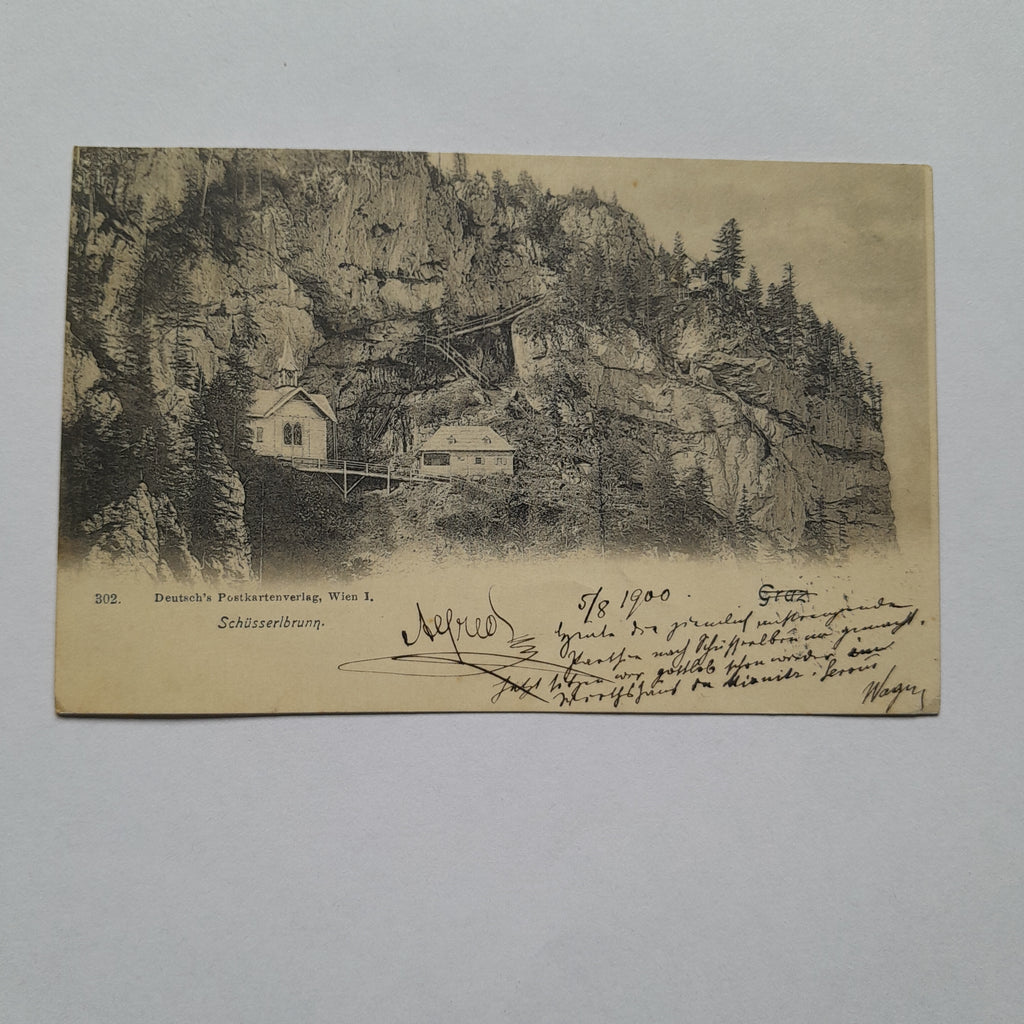 302. Deutsch's Postkartenverlag, Wien I.
Schüsserlbrunn.
Alfred
5/8 1900.
Graz
Heute die ziemlich anstrengende
Parthie nach Schüsselbrunn gemacht.
Jetzt sitzen wir gottlob schon wieder im
Wirthshaus in Mixnitz. Servus
Wagner